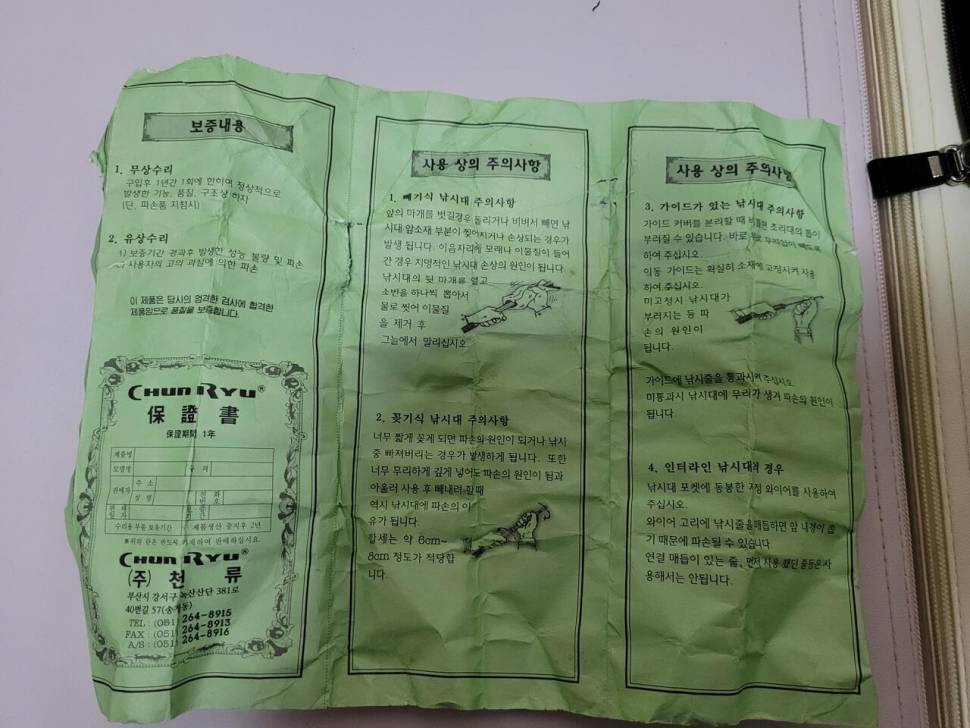 보증내용
1. 무상수리
구입후 1년간 1회에 한하여 정상적으로
발생한 기능, 품질, 구조상 하자
(단, 파손품 지참시)
2. 유상수리
1) 보증기간 경과후 발생한 성능 불량 및 파손
2) 사용자의 고의 과실에 의한 파손
이 제품은 당사의 엄격한 검사에 합격한
제품임으로 품질을 보증합니다.
CHUN RYU®
保證書
保證期間 1年
제품명
모델명 규격
판매자 주소
성명 전화번호
판매일자
수리용 부품 보유기간 제품생산 중지후 2년
※위의 란은 반드시 기재하여 판매하십시요.
CHUN RYU®
(주) 천 류
부산시 강서구 녹산산단 381로
40번길 57(송정동)
TEL : (051) 264-8915
FAX : (051) 264-8913
A/S : (051) 264-8916
사용 상의 주의사항
1. 빼기식 낚시대 주의사항
앞의 마개를 벗길경우 돌리거나 비벼서 빼면 낚
시대 앞소재 부분이 찢어지거나 손상되는 경우가
발생 됩니다. 이음자리에 모래나 이물질이 들어
간 경우 치명적인 낚시대 손상의 원인이 됩니다.
낚시대의 뒷 마개를 열고
소반을 하나씩 뽑아서
물로 씻어 이물질
을 제거 후
그늘에서 말리십시오.
2. 꽂기식 낚시대 주의사항
너무 짧게 꽂게 되면 파손의 원인이 되거나 낚시
중 빠져버리는 경우가 발생하게 됩니다. 또한
너무 무리하게 깊게 넣어도 파손의 원인이 됨과
아울러 사용 후 빼내려 할때
역시 낚시대에 파손의 이
유가 됩니다.
합세는 약 6cm~
8cm 정도가 적당합
니다.
사용 상의 주의사항
3. 가이드가 있는 낚시대 주의사항
가이드 커버를 분리할 때 비틀면 초리대의 톱이
부러질 수 있습니다. 바로 무리없이 빼도록
하여 주십시오.
이동 가이드는 확실히 소재에 고정시켜 사용
하여 주십시오.
미고정시 낚시대가
부러지는 등 파
손의 원인이
됩니다.
가이드에 낚시줄을 통과시켜 주십시오.
미통과시 낚시대에 무리가 생겨 파손의 원인이
됩니다.
4. 인터라인 낚시대의 경우
낚시대 포켓에 동봉한 지정 와이어를 사용하여
주십시오.
와이어 고리에 낚시줄을 매듭하면 앞 내경이 좁
기 때문에 파손될 수 있습니다.
연결 매듭이 있는 줄, 먼저 사용 했던 줄등은 사
용해서는 안됩니다.